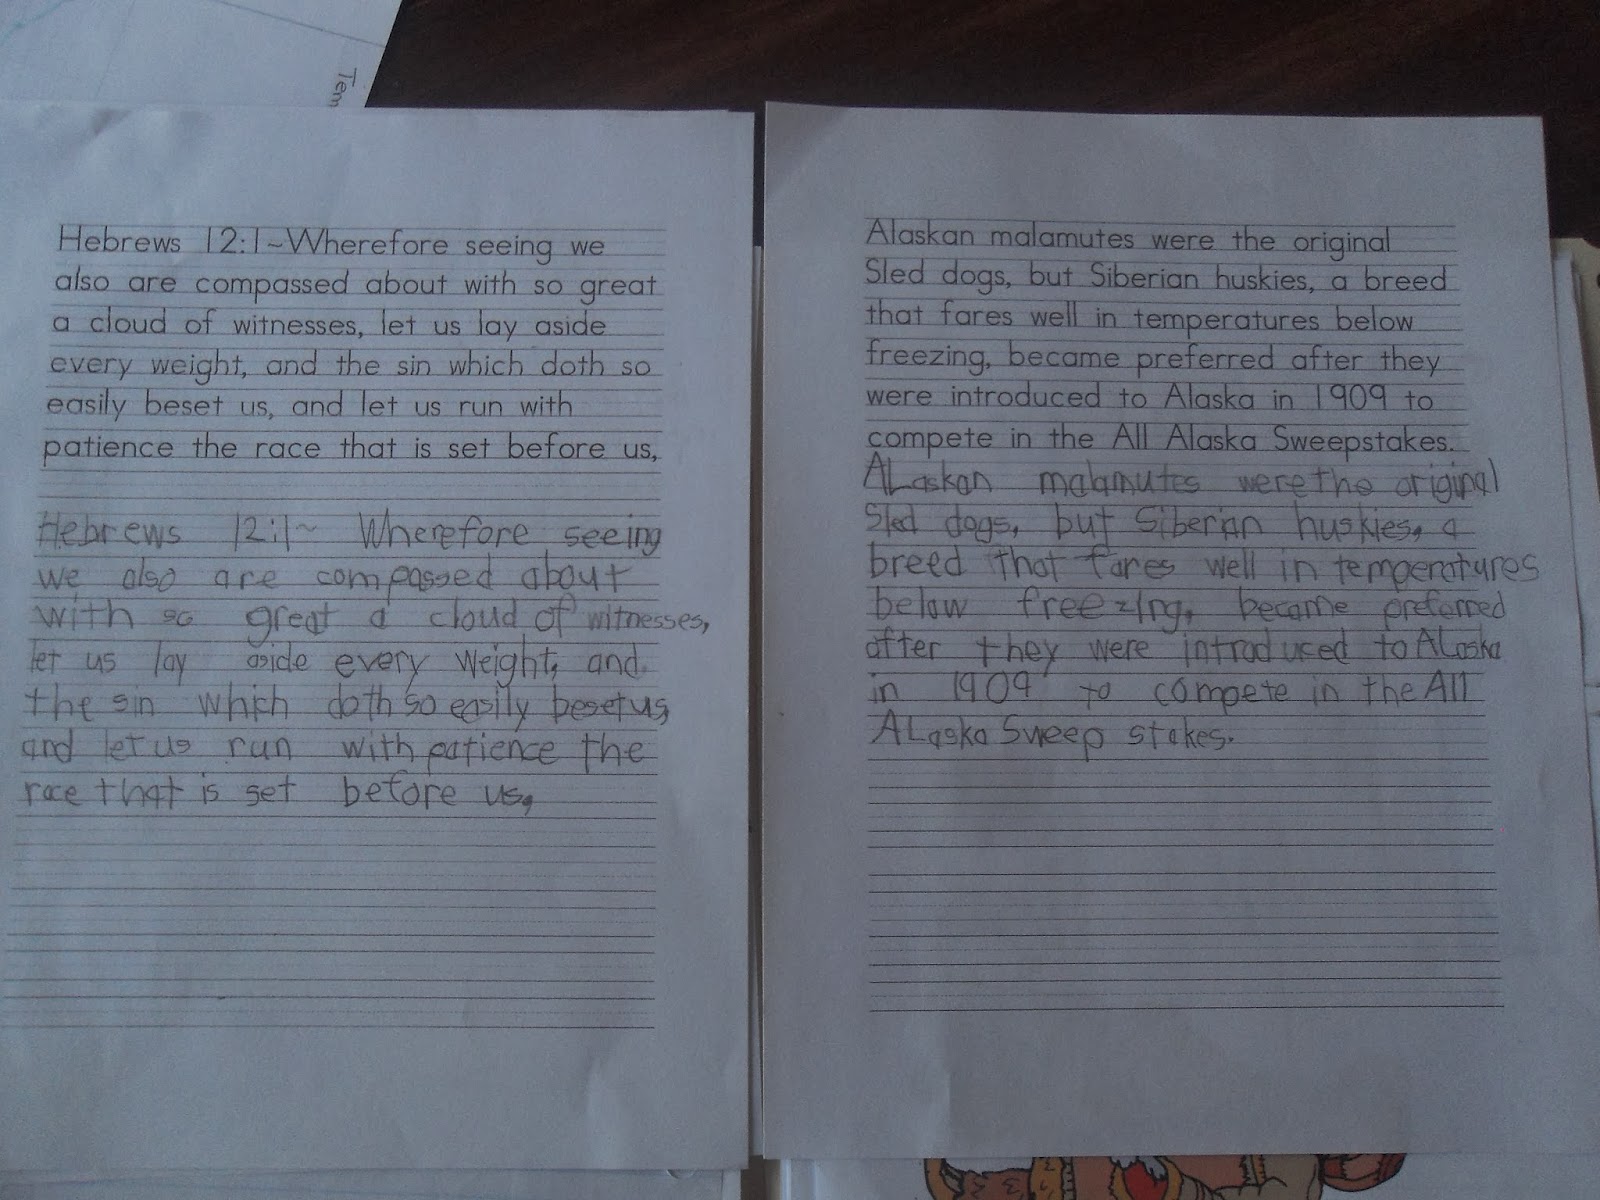 Tem
Hebrews 12:1~Wherefore seeing we
also are compassed about with so great
a cloud of witnesses, let us lay aside
every weight, and the sin which doth so
easily beset us, and let us run with
patience the race that is set before us,
Hebrews 12:1~ Wherefore seeing
we also are compassed about
with so great a cloud of witnesses,
let us lay aside every weight, and
the sin which doth so easily beset us,
and let us run with patience the
race that is set before us,
Alaskan malamutes were the original
Sled dogs, but Siberian huskies, a breed
that fares well in temperatures below
freezing, became preferred after they
were introduced to Alaska in 1909 to
compete in the All Alaska Sweepstakes.
ALaskan malamutes were the original
Sled dogs, but Siberian huskies, a
breed that fares well in temperatures
below freezing, became preferred
after they were introduced to ALaska
in 1909 to compete in the All
ALaska Sweep stakes.